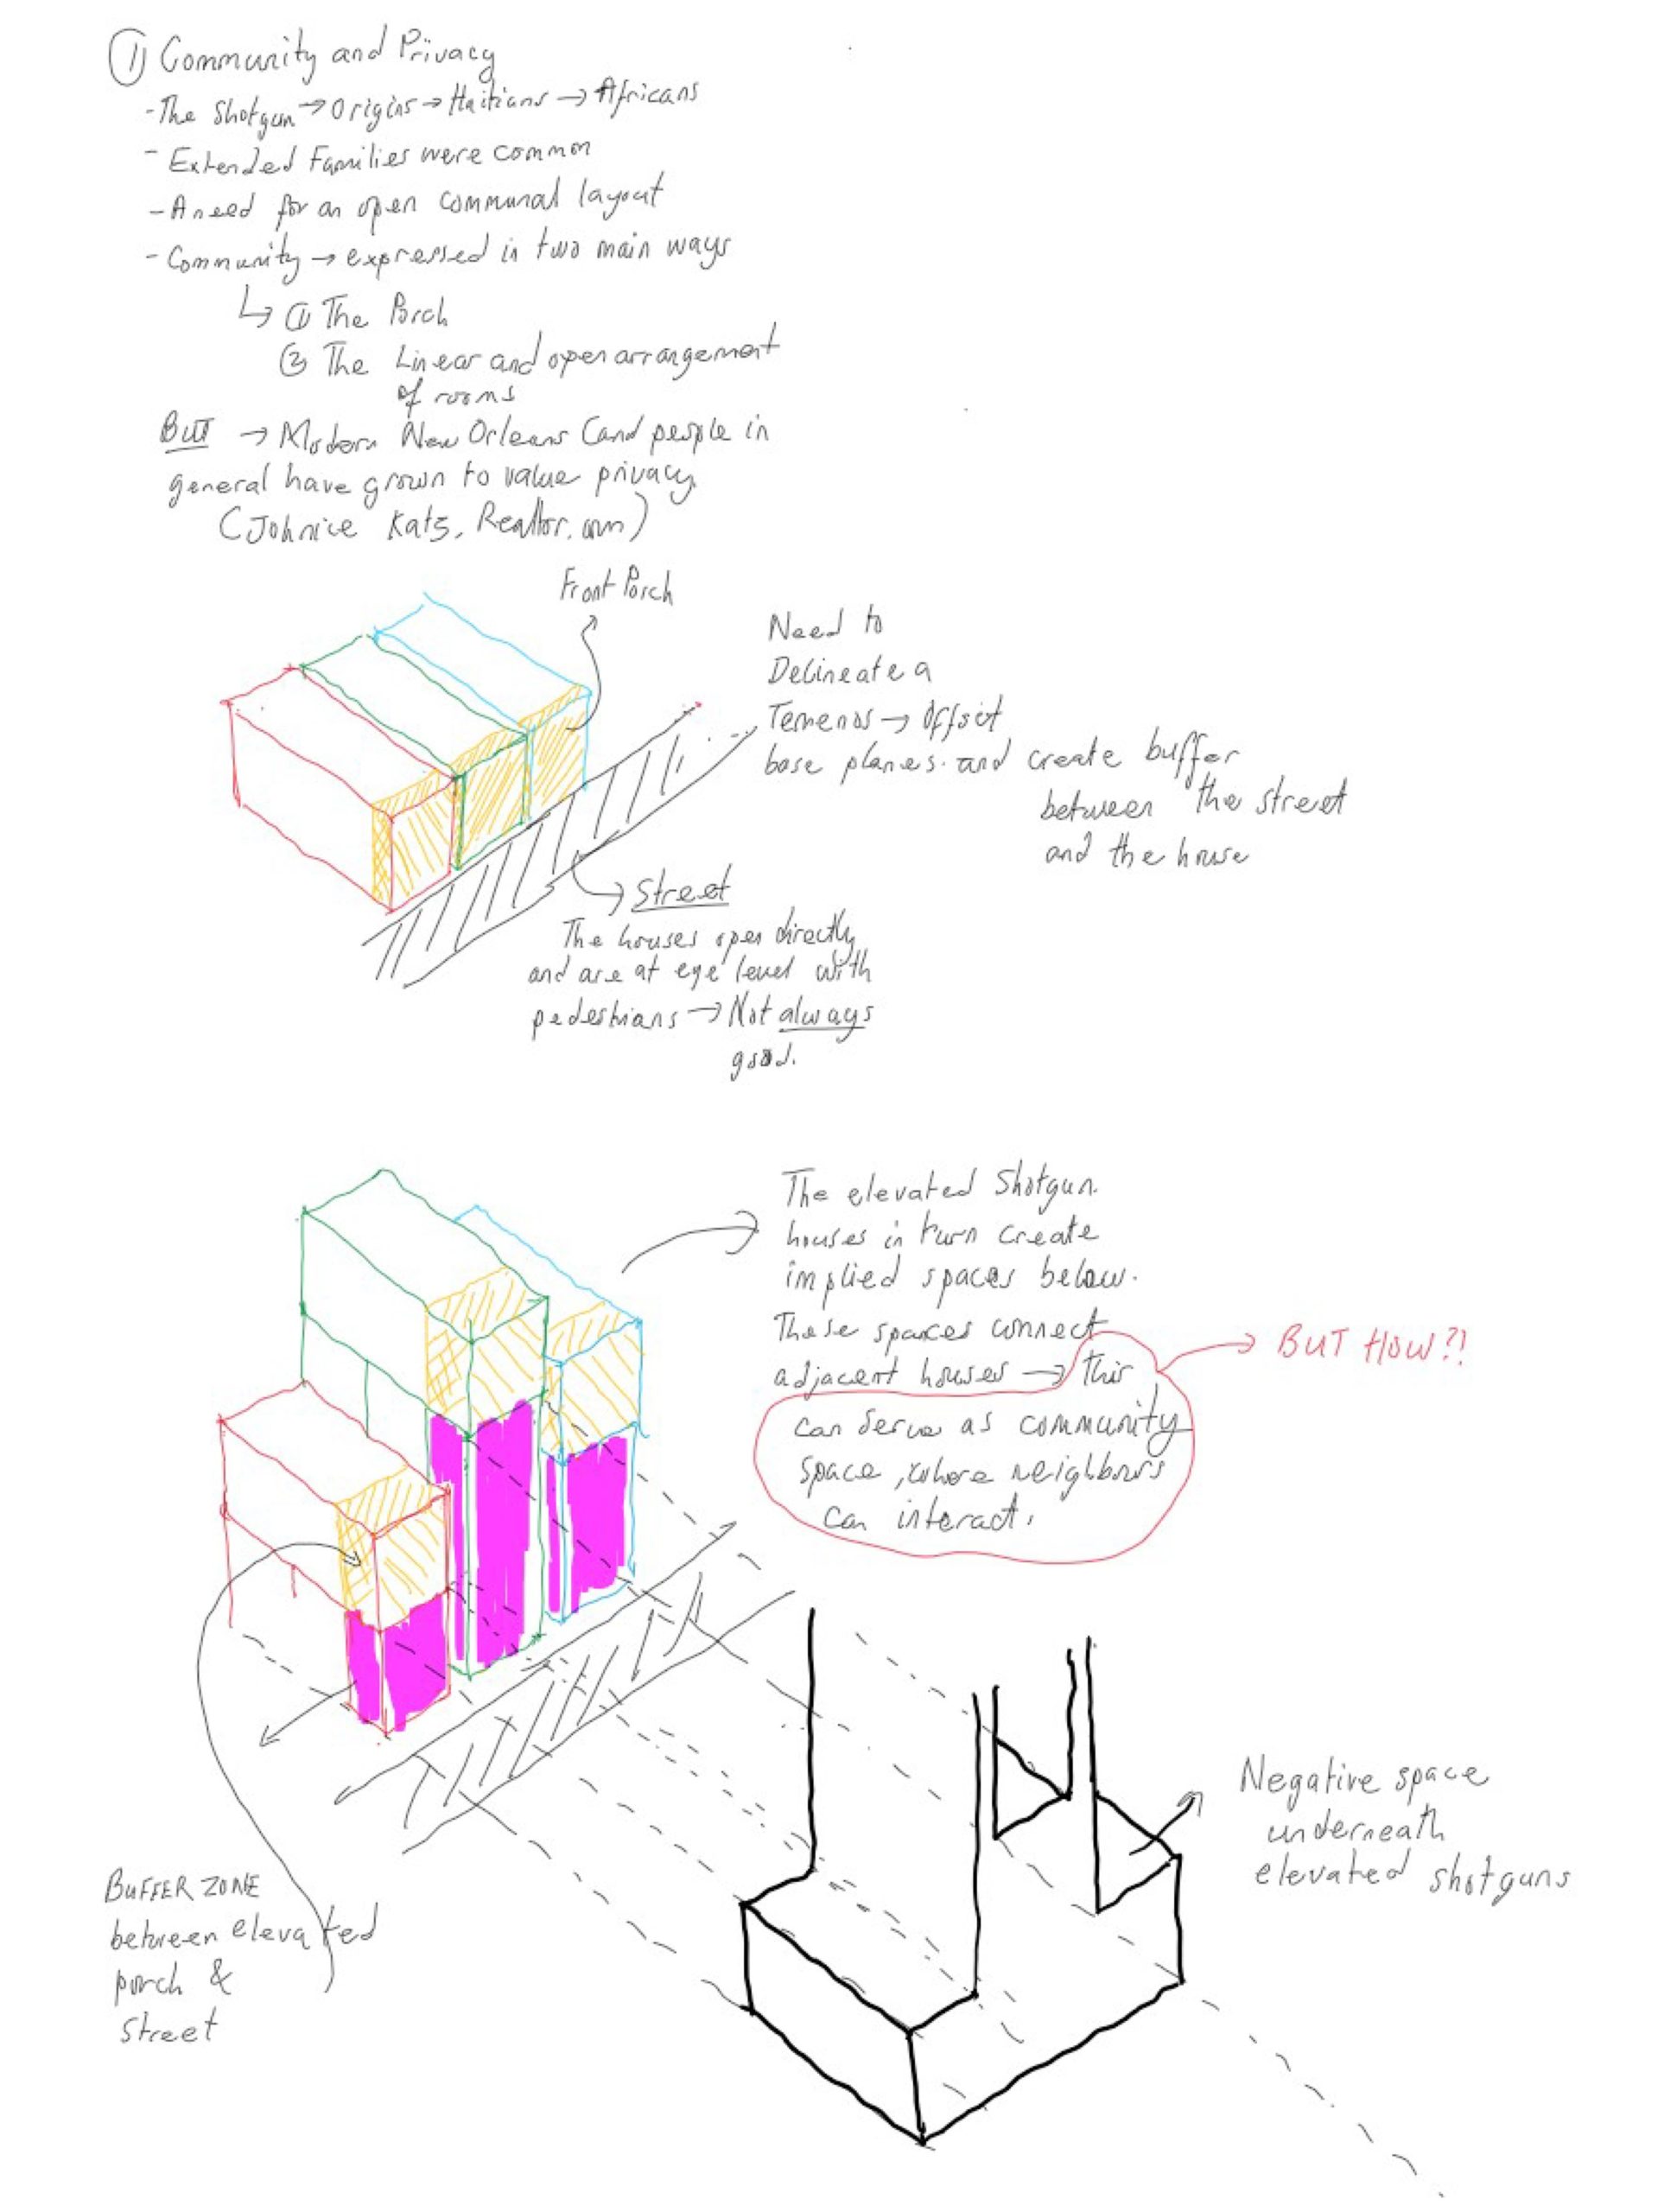 ① Community and Privacy
- The Shotgun → Origins → Haitians → Africans
- Extended Families were common
- A need for an open communal layout
- Community → expressed in two main ways
↳ ① The Porch
② The Linear and open arrangement
of rooms
BUT → Modern New Orleans (and people in
general have grown to value privacy.
(Johnice Katz, Realtor.com)
Front Porch
Need to
Delineate a
Temenos → Offset
base planes. and create buffer
between the street
and the house
Street
The houses open directly
and are at eye level with
pedestrians → Not always
good.
The elevated Shotgun.
houses in turn create
implied spaces below.
These spaces connect
adjacent houses → this
can serve as community
space, where neighbours
can interact.
BUT HOW?!
Negative space
underneath
elevated shotguns
BUFFER ZONE
between elevated
porch &
Street